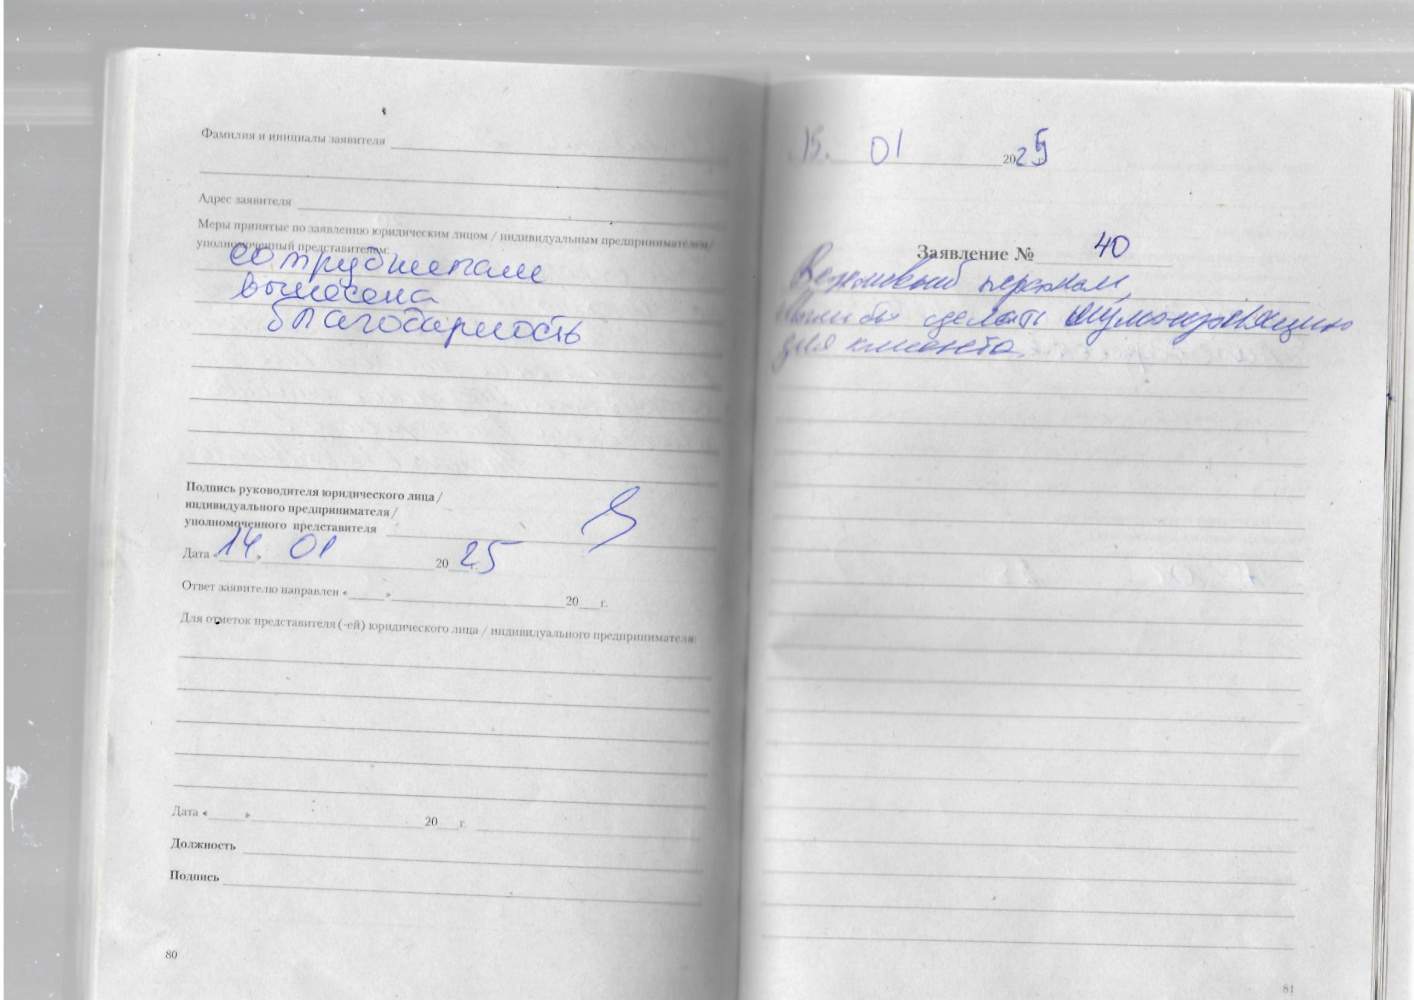 Фамилия и инициалы заявителя
Адрес заявителя
Меры принятые по заявлению юридическим лицом / индивидуальным предпринимателем/
уполномоченный представителем:
сотрудникам
вынесена
благодарность
Подпись руководителя юридического лица /
индивидуального предпринимателя /
уполномоченного представителя
Дата «14. » 01 2025 г.
Ответ заявителю направлен «     »      20   г.
Для отметок представителя (-ей) юридического лица / индивидуального предпринимателя
Дата «     »      20   г.
Должность
Подпись
80
15. 01 2025
Заявление № 40
Вежливый персонал,
бы сделать шумоизоляцию
для клиента.
81